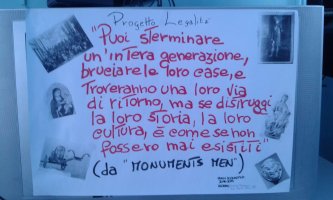 Progetto Legalità
"Puoi sterminare
un'intera generazione,
bruciare le loro case, e
troveranno una loro via
di ritorno, ma se distruggi
la loro storia, la loro
cultura, è come se non
fossero mai esistiti"
(da "MONUMENTS MEN")